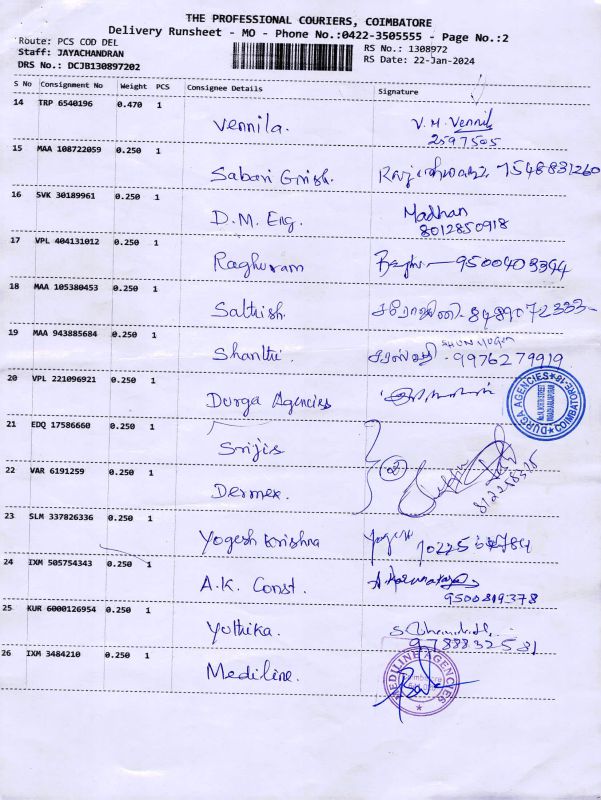 THE PROFESSIONAL COURIERS, COIMBATORE
Delivery Runsheet - MO - Phone No.:0422-3505555 - Page No.:2
Route: PCS COD DEL
Staff: JAYACHANDRAN
DRS No.: DCJB130897202
RS No.: 1308972
RS Date: 22-Jan-2024
S No Consignment No Weight PCS Consignee Details Signature
14 TRP 6540196 0.470 1 Vennila. V. M. Vennil
2597505
15 MAA 108722059 0.250 1 Sabari Girish. 7548831260
16 SVK 30189961 0.250 1 D.M. Eng. Madhan
8012850918
17 VPL 404131012 0.250 1 Raghuram 9500403394
18 MAA 105380453 0.250 1 Sathish. சரோஜினி - 8489072333
19 MAA 943885684 0.250 1 Shanthi. சரஸ்வதி - 9976279919
20 VPL 221096921 0.250 1 Durga Agencies
DURGA AGENCIES COIMBATORE-18
21 EDQ 17586660 0.250 1 Srijis
22 VAR 6191259 0.250 1 Dermex.
02
23 SLM 337826336 0.250 1 Yogesh Krishna
24 IXM 505754343 0.250 1 A.K. Const.
9500819378
25 KUR 6000126954 0.250 1 Yuthika.
9788832531
26 IXM 3484210 0.250 1 Mediline.
MEDILINE AGENCIES